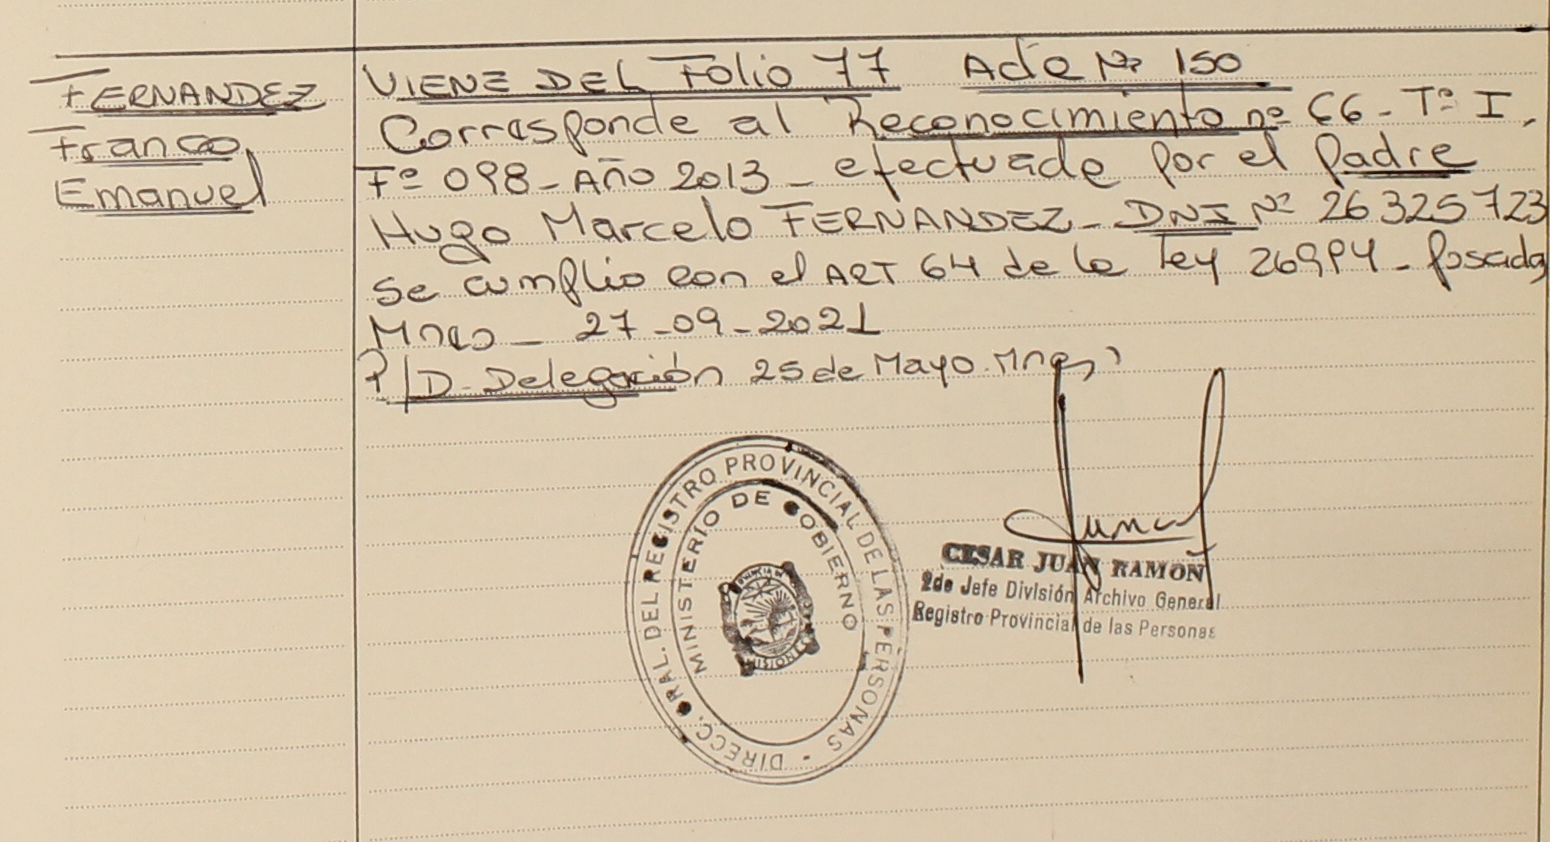 FERNANDEZ
Franco
Emanuel
VIENE DEL Folio 77 Acta Nº 150
Corresponde al Reconocimiento nº 66 - Tº I,
Fº 098 - Año 2013 - efectuado por el padre
Hugo Marcelo FERNANDEZ - DNI Nº 26325723
se cumplio con el ART 64 de la Ley 26994 - Posadas
Mnes - 27-09-2021
P/D. Delegación 25 de Mayo. Mnes
DIRECC. GRAL. DEL REGISTRO PROVINCIAL DE LAS PERSONAS -
MINISTERIO DE GOBIERNO
CESAR JUAN RAMON
2do Jefe División Archivo General
Registro Provincial de las Personas